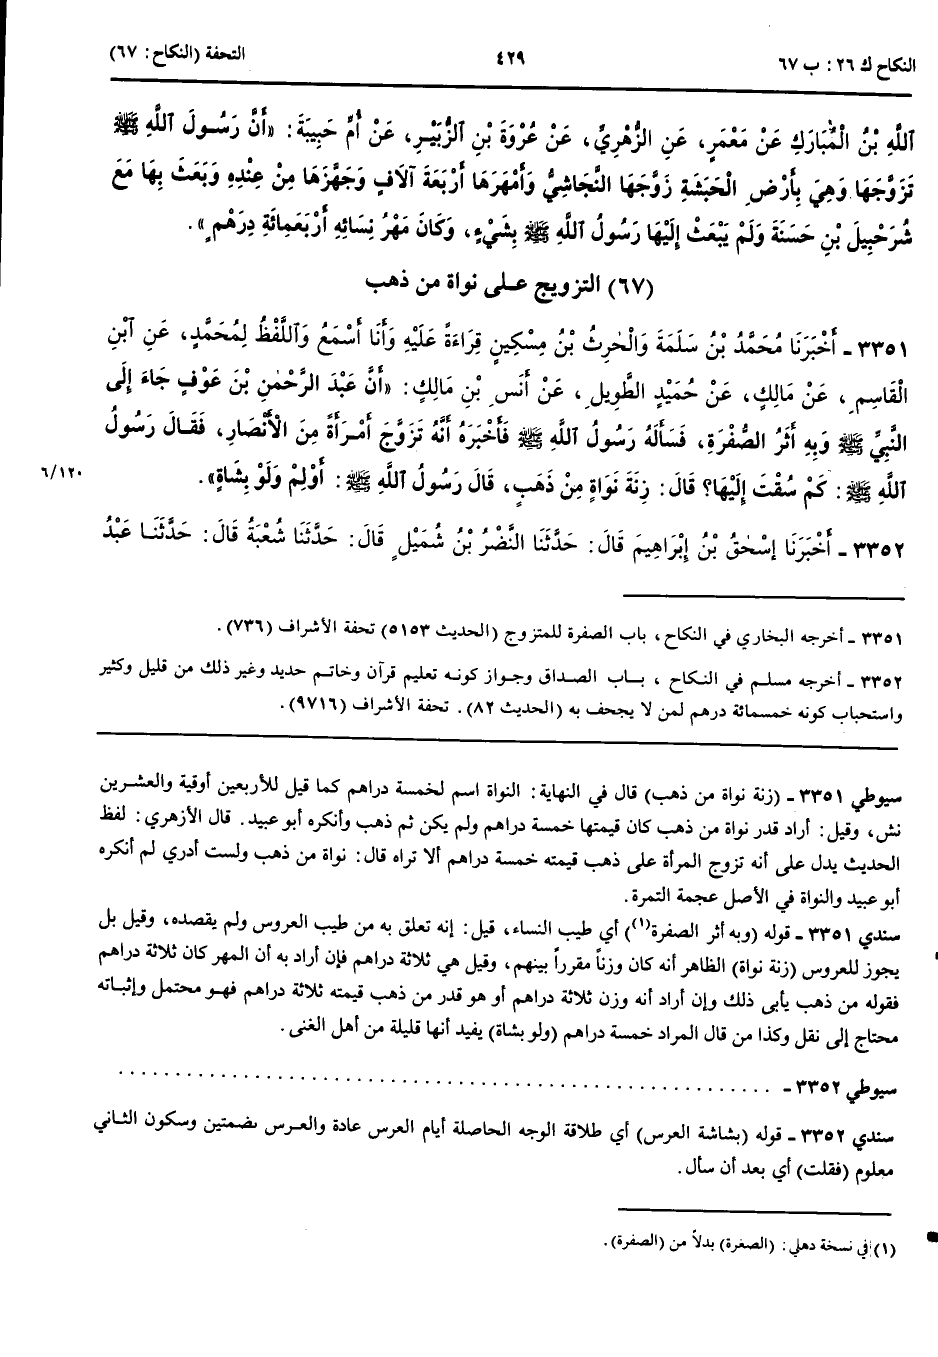 النكاح ك ٢٦: ب ٦٧ ٤٢٩ التحفة (النكاح: ٦٧)
ٱللَّهِ بْنُ الْمُبَارَكِ عَنْ مَعْمَرٍ، عَنِ الزُّهْرِيِّ، عَنْ عُرْوَةَ بْنِ الزُّبَيْرِ، عَنْ أُمِّ حَبِيبَةَ: «أَنَّ رَسُولَ ٱللَّهِ ﷺ
تَزَوَّجَهَا وَهِيَ بِأَرْضِ الْحَبَشَةِ زَوَّجَهَا النَّجَاشِيُّ وَأَمْهَرَهَا أَرْبَعَةَ آلَافٍ وَجَهَّزَهَا مِنْ عِنْدِهِ وَبَعَثَ بِهَا مَعَ
شُرَحْبِيلَ بْنِ حَسَنَةَ وَلَمْ يَبْعَثْ إِلَيْهَا رَسُولُ ٱللَّهِ ﷺ بِشَيْءٍ، وَكَانَ مَهْرُ نِسَائِهِ أَرْبَعَمِائَةِ دِرْهَمٍ».
(٦٧) التزويج على نواة من ذهب
٣٣٥١ - أَخْبَرَنَا مُحَمَّدُ بْنُ سَلَمَةَ وَالْحٰرِثُ بْنُ مِسْكِينٍ قِرَاءَةً عَلَيْهِ وَأَنَا أَسْمَعُ وَٱللَّفْظُ لِمُحَمَّدٍ، عَنِ ٱبْنِ
الْقَاسِمِ، عَنْ مَالِكٍ، عَنْ حُمَيْدٍ الطَّوِيلِ، عَنْ أَنَسِ بْنِ مَالِكٍ: «أَنَّ عَبْدَ الرَّحْمٰنِ بْنَ عَوْفٍ جَاءَ إِلَى
النَّبِيِّ ﷺ وَبِهِ أَثَرُ الصُّفْرَةِ، فَسَأَلَهُ رَسُولُ ٱللَّهِ ﷺ فَأَخْبَرَهُ أَنَّهُ تَزَوَّجَ ٱمْرَأَةً مِنَ الْأَنْصَارِ، فَقَالَ رَسُولُ
ٱللَّهِ ﷺ: كَمْ سُقْتَ إِلَيْهَا؟ قَالَ: زِنَةَ نَوَاةٍ مِنْ ذَهَبٍ، قَالَ رَسُولُ ٱللَّهِ ﷺ: أَوْلِمْ وَلَوْ بِشَاةٍ». ٦/١٢٠
٣٣٥٢ - أَخْبَرَنَا إِسْحٰقُ بْنُ إِبْرَاهِيمَ قَالَ: حَدَّثَنَا النَّضْرُ بْنُ شُمَيْلٍ قَالَ: حَدَّثَنَا شُعْبَةُ قَالَ: حَدَّثَنَا عَبْدُ
٣٣٥١ - أخرجه البخاري في النكاح، باب الصفرة للمتزوج (الحديث ٥١٥٣) تحفة الأشراف (٧٣٦).
٣٣٥٢ - أخرجه مسلم في النكاح، باب الصداق وجواز كونه تعليم قرآن وخاتم حديد وغير ذلك من قليل وكثير
واستحباب كونه خمسمائة درهم لمن لا يجحف به (الحديث ٨٢). تحفة الأشراف (٩٧١٦).
سيوطي ٣٣٥١ - (زنة نواة من ذهب) قال في النهاية: النواة اسم لخمسة دراهم كما قيل للأربعين أوقية والعشرين
نش، وقيل: أراد قدر نواة من ذهب كان قيمتها خمسة دراهم ولم يكن ثم ذهب وأنكره أبو عبيد. قال الأزهري: لفظ
الحديث يدل على أنه تزوج المرأة على ذهب قيمته خمسة دراهم ألا تراه قال: نواة من ذهب ولست أدري لم أنكره
أبو عبيد والنواة في الأصل عجمة التمرة.
سندي ٣٣٥١ - قوله (وبه أثر الصفرة(١)) أي طيب النساء، قيل: إنه تعلق به من طيب العروس ولم يقصده، وقيل بل
يجوز للعروس (زنة نواة) الظاهر أنه كان وزناً مقرراً بينهم، وقيل هي ثلاثة دراهم فإن أراد به أن المهر كان ثلاثة دراهم
فقوله من ذهب يأبى ذلك وإن أراد أنه وزن ثلاثة دراهم أو هو قدر من ذهب قيمته ثلاثة دراهم فهو محتمل وإثباته
محتاج إلى نقل وكذا من قال المراد خمسة دراهم (ولو بشاة) يفيد أنها قليلة من أهل الغنى.
سيوطي ٣٣٥٢ - . . . . . . . . . . . . . . . . . . . . . . . . . . . . . . . . . . . . . . . .
سندي ٣٣٥٢ - قوله (بشاشة العرس) أي طلاقة الوجه الحاصلة أيام العرس عادة والعرس بضمتين وسكون الثاني
معلوم (فقلت) أي بعد أن سأل.
(١) في نسخة دهلي: (الصغرة) بدلاً من (الصفرة).